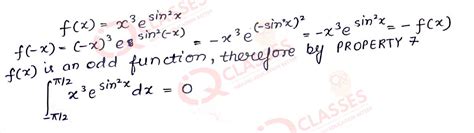 f(x) = x³ e^(sin²x)
f(-x) = (-x)³ e^(sin²(-x)) = -x³ e^((-sin x)²) = -x³ e^(sin²x) = -f(x)
f(x) is an odd function, therefore by PROPERTY 7
∫_(-π/2)^(π/2) x³ e^(sin²x) dx = 0
CLASSES
IQ CLASSES